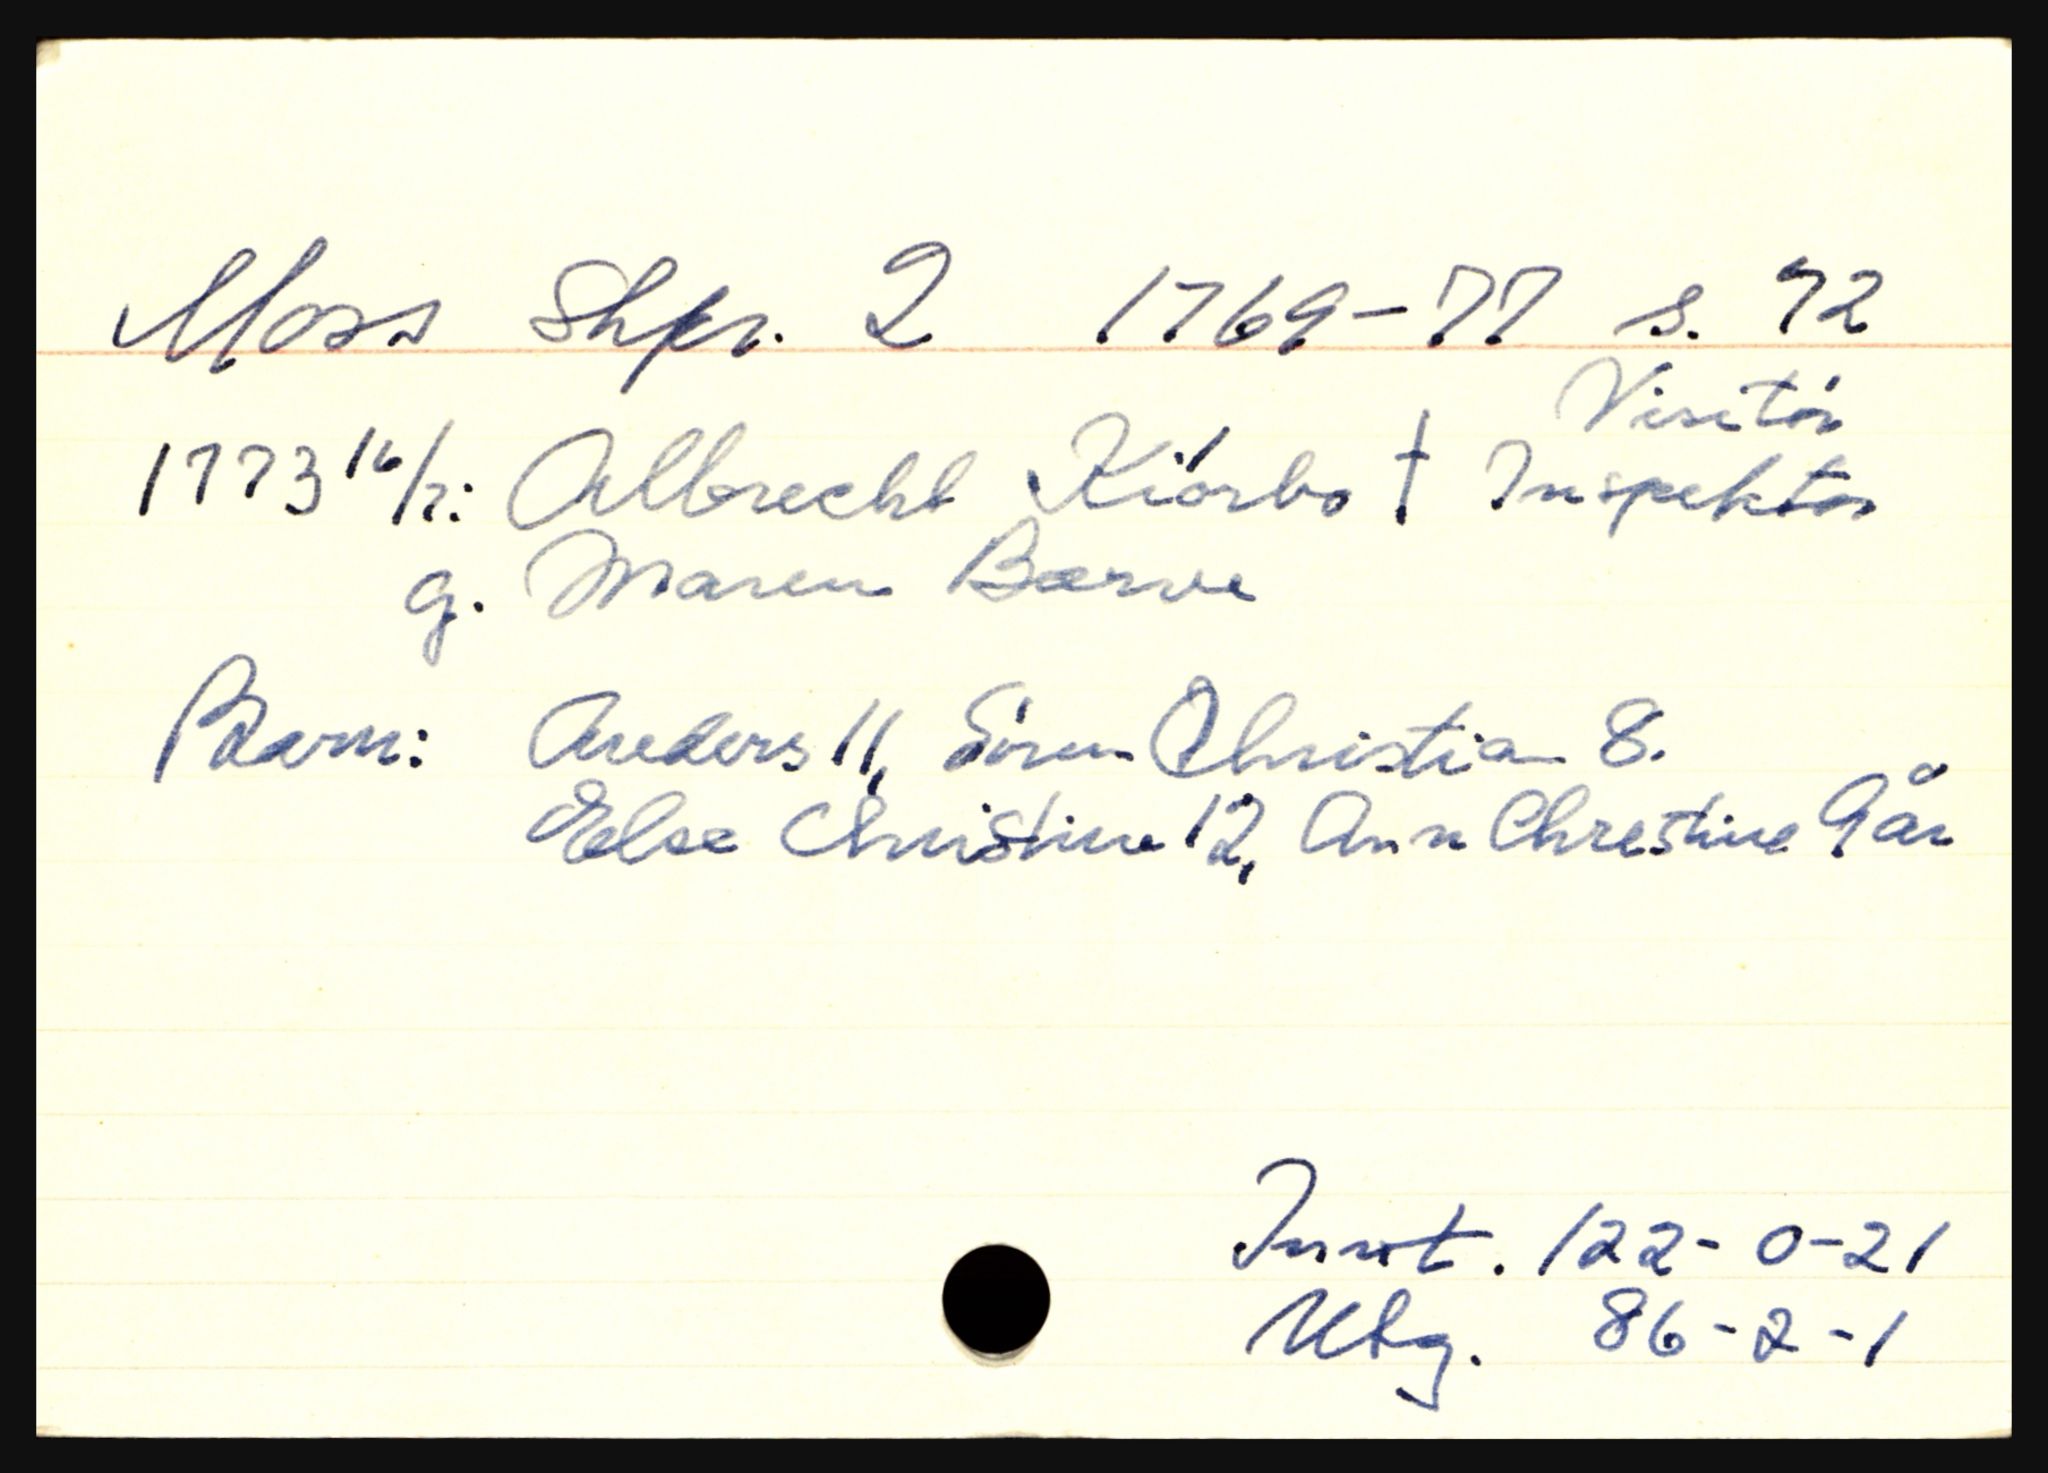 Moss Skpr. 2 1769-77 s. 72
Visitør
1773 16/7: Albrecht Kiørbo † Inspektør
g. Maren Bærve
Barn: Anders 11, Sören Christian 8.
Else Christine 12, Ann Chrestine 9 år
Innt. 122-0-21
Utg. 86-2-1